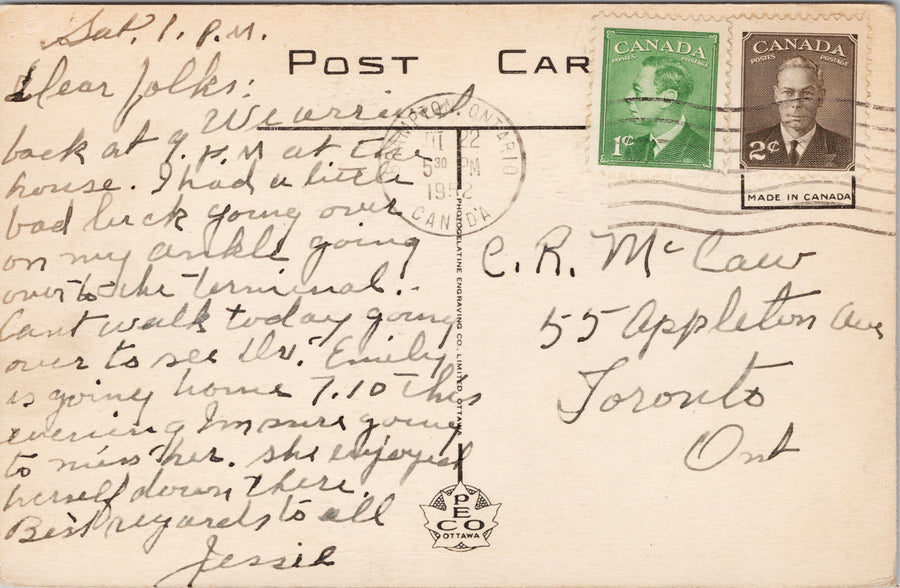 Sat. 1. P.M.
POST CAR
Dear folks:
We arrived
back at 9. P.M at the
house. I had a little
bad luck going over
on my ankle going
over to the terminal.
Cant walk today going
over to see Dr. Emily
is going home 7.10 this
evening Im sure going
to miss her. she enjoyed
herself down there.
Best regards to all
Jessie
CANADA
POSTES POSTAGE
1¢
CANADA
POSTES POSTAGE
2¢
MADE IN CANADA
ONTARIO
22
5 30 PM
1952
CANADA
C. R. McCaw
55 Appleton Ave
Toronto
Ont
PHOTOGELATINE ENGRAVING CO., LIMITED, OTTAWA
PECO
OTTAWA